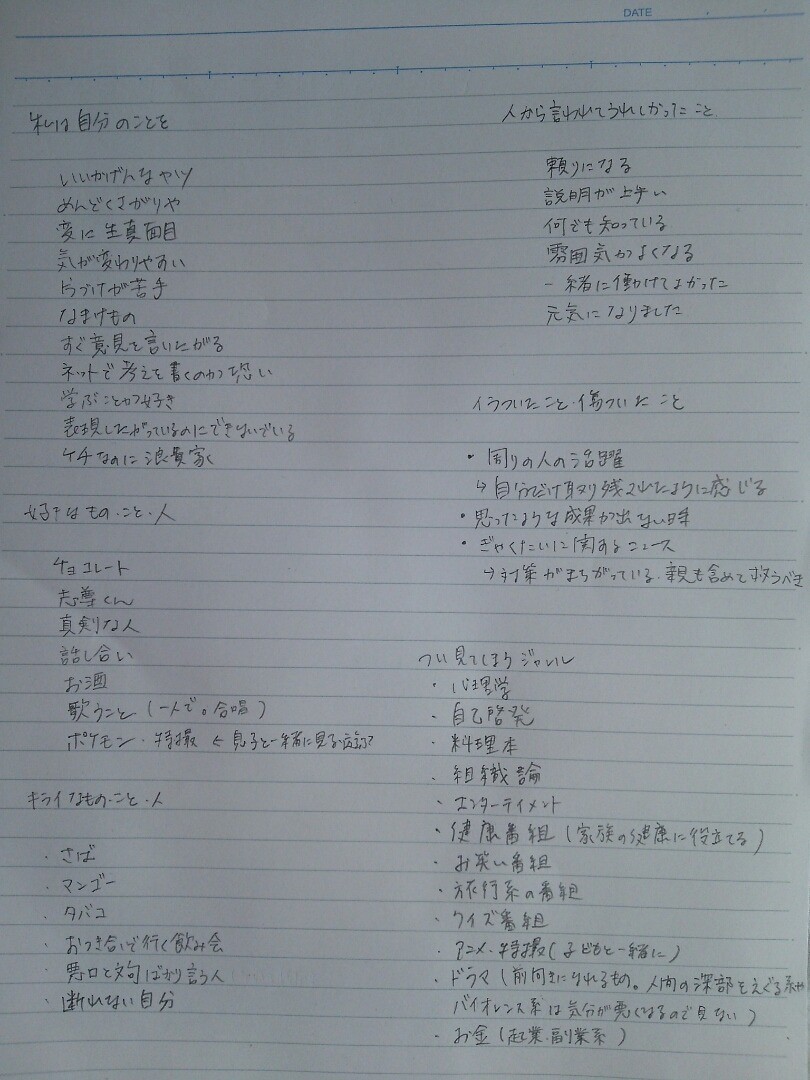 DATE
私は自分のことを
いいかげんなヤツ
めんどくさがりや
変に生真面目
気が変わりやすい
片づけが苦手
なまけもの
すぐ意見を言いたがる
ネットで考えを書くのが恐い
学ぶことが好き
表現したがっているのにできないでいる
ケチなのに浪費家
好きなもの・こと・人
チョコレート
志尊くん
真剣な人
話し合い
お酒
歌うこと(一人で。合唱)
ポケモン・特撮 ← 息子と一緒に見る
キライなもの・こと・人
・さば
・マンゴー
・タバコ
・おつき合いで行く飲み会
・悪口と文句ばかり言う人
・断れない自分
人から言われてうれしかったこと
頼りになる
説明が上手い
何でも知っている
雰囲気がよくなる
一緒に働けてよかった
元気になりました
イラついたこと・傷ついたこと
・周りの人の活躍
↳自分だけ取り残されたように感じる
・思ったような成果が出ない時
・ぎゃくたいに関するニュース
↳対策がまちがっている。親も含めて救うべき
つい見てしまうジャンル
・心理学
・自己啓発
・料理本
・組織論
・エンターテイメント
・健康番組(家族の健康に役立てる)
・お笑い番組
・旅行系の番組
・クイズ番組
・アニメ・特撮(子どもと一緒に)
・ドラマ(前向きになれるもの。人間の深部をえぐる系や
バイオレンス系は気分が悪くなるので見ない)
・お金(起業・副業系)